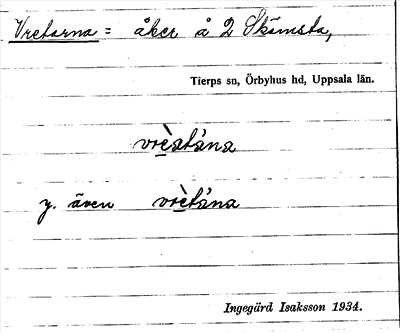 Vretarna = åker å 2 Skämsta,
Tierps sn, Örbyhus hd, Uppsala län.
vrèatána
y. även vrètána
Ingegärd Isaksson 1934.